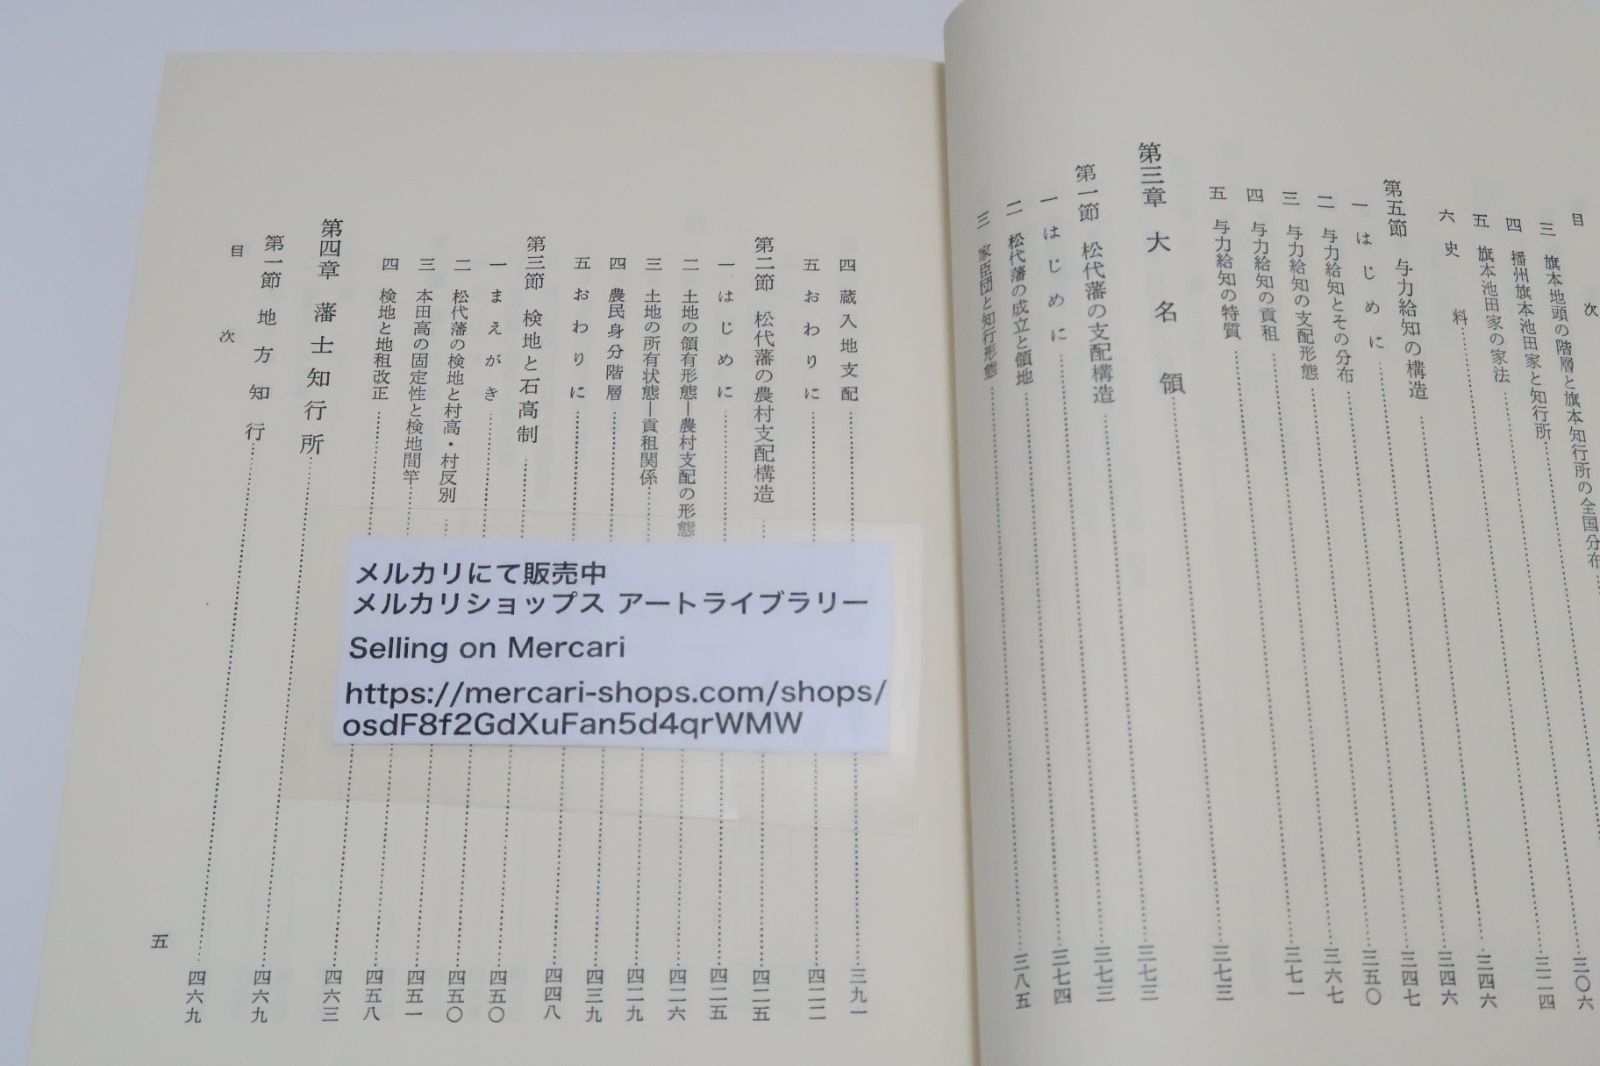 目次
三 旗本地頭の階層と旗本知行所の全国分布
四 播州旗本池田家と知行所
五 旗本池田家の家法 三〇六
六 史料 三二四
第五節 与力給知の構造 三四六
一 はじめに 三四六
二 与力給知とその分布 三四七
三 与力給知の支配形態 三五〇
四 与力給知の貢租 三六七
五 与力給知の特質 三七一
第三章 大名領 三七三
第一節 松代藩の支配構造 三七三
一 はじめに 三七三
二 松代藩の成立と領地 三七四
三 家臣団と知行形態 三八五
四 蔵入地支配 三九一
五 おわりに 四二二
第二節 松代藩の農村支配構造 四二五
一 はじめに 四二五
二 土地の領有形態―農村支配の形態 四二六
三 土地の所有状態―貢租関係 四二九
四 農民身分階層 四三九
五 おわりに 四四八
第三節 検地と石高制 四五〇
一 まえがき 四五〇
二 松代藩の検地と村高・村反別 四五一
三 本田高の固定性と検地間竿 四五八
四 検地と地租改正 四六三
第四章 藩士知行所 四六九
第一節 地方知行 四六九
目次
五
メルカリにて販売中
メルカリショップス アートライブラリー
Selling on Mercari
https://mercari-shops.com/shops/
osdF8f2GdXuFan5d4qrWMW